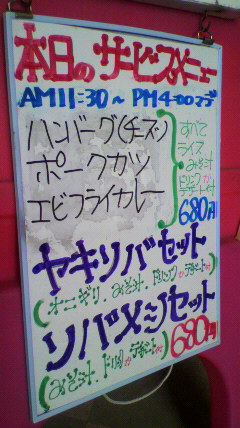 本日のサービスメニュー
AM11:30～PM4:00マデ
ハンバーグ(チーズ)
ポークカツ
エビフライカレー
すべて
ライス
みそ汁
ドリンクか
デザート付
680円
ヤキソバセット
(オニギリ、みそ汁、ドリンクかデザート)
ソバメシセット
(みそ汁、ドリンクかデザート)
680円